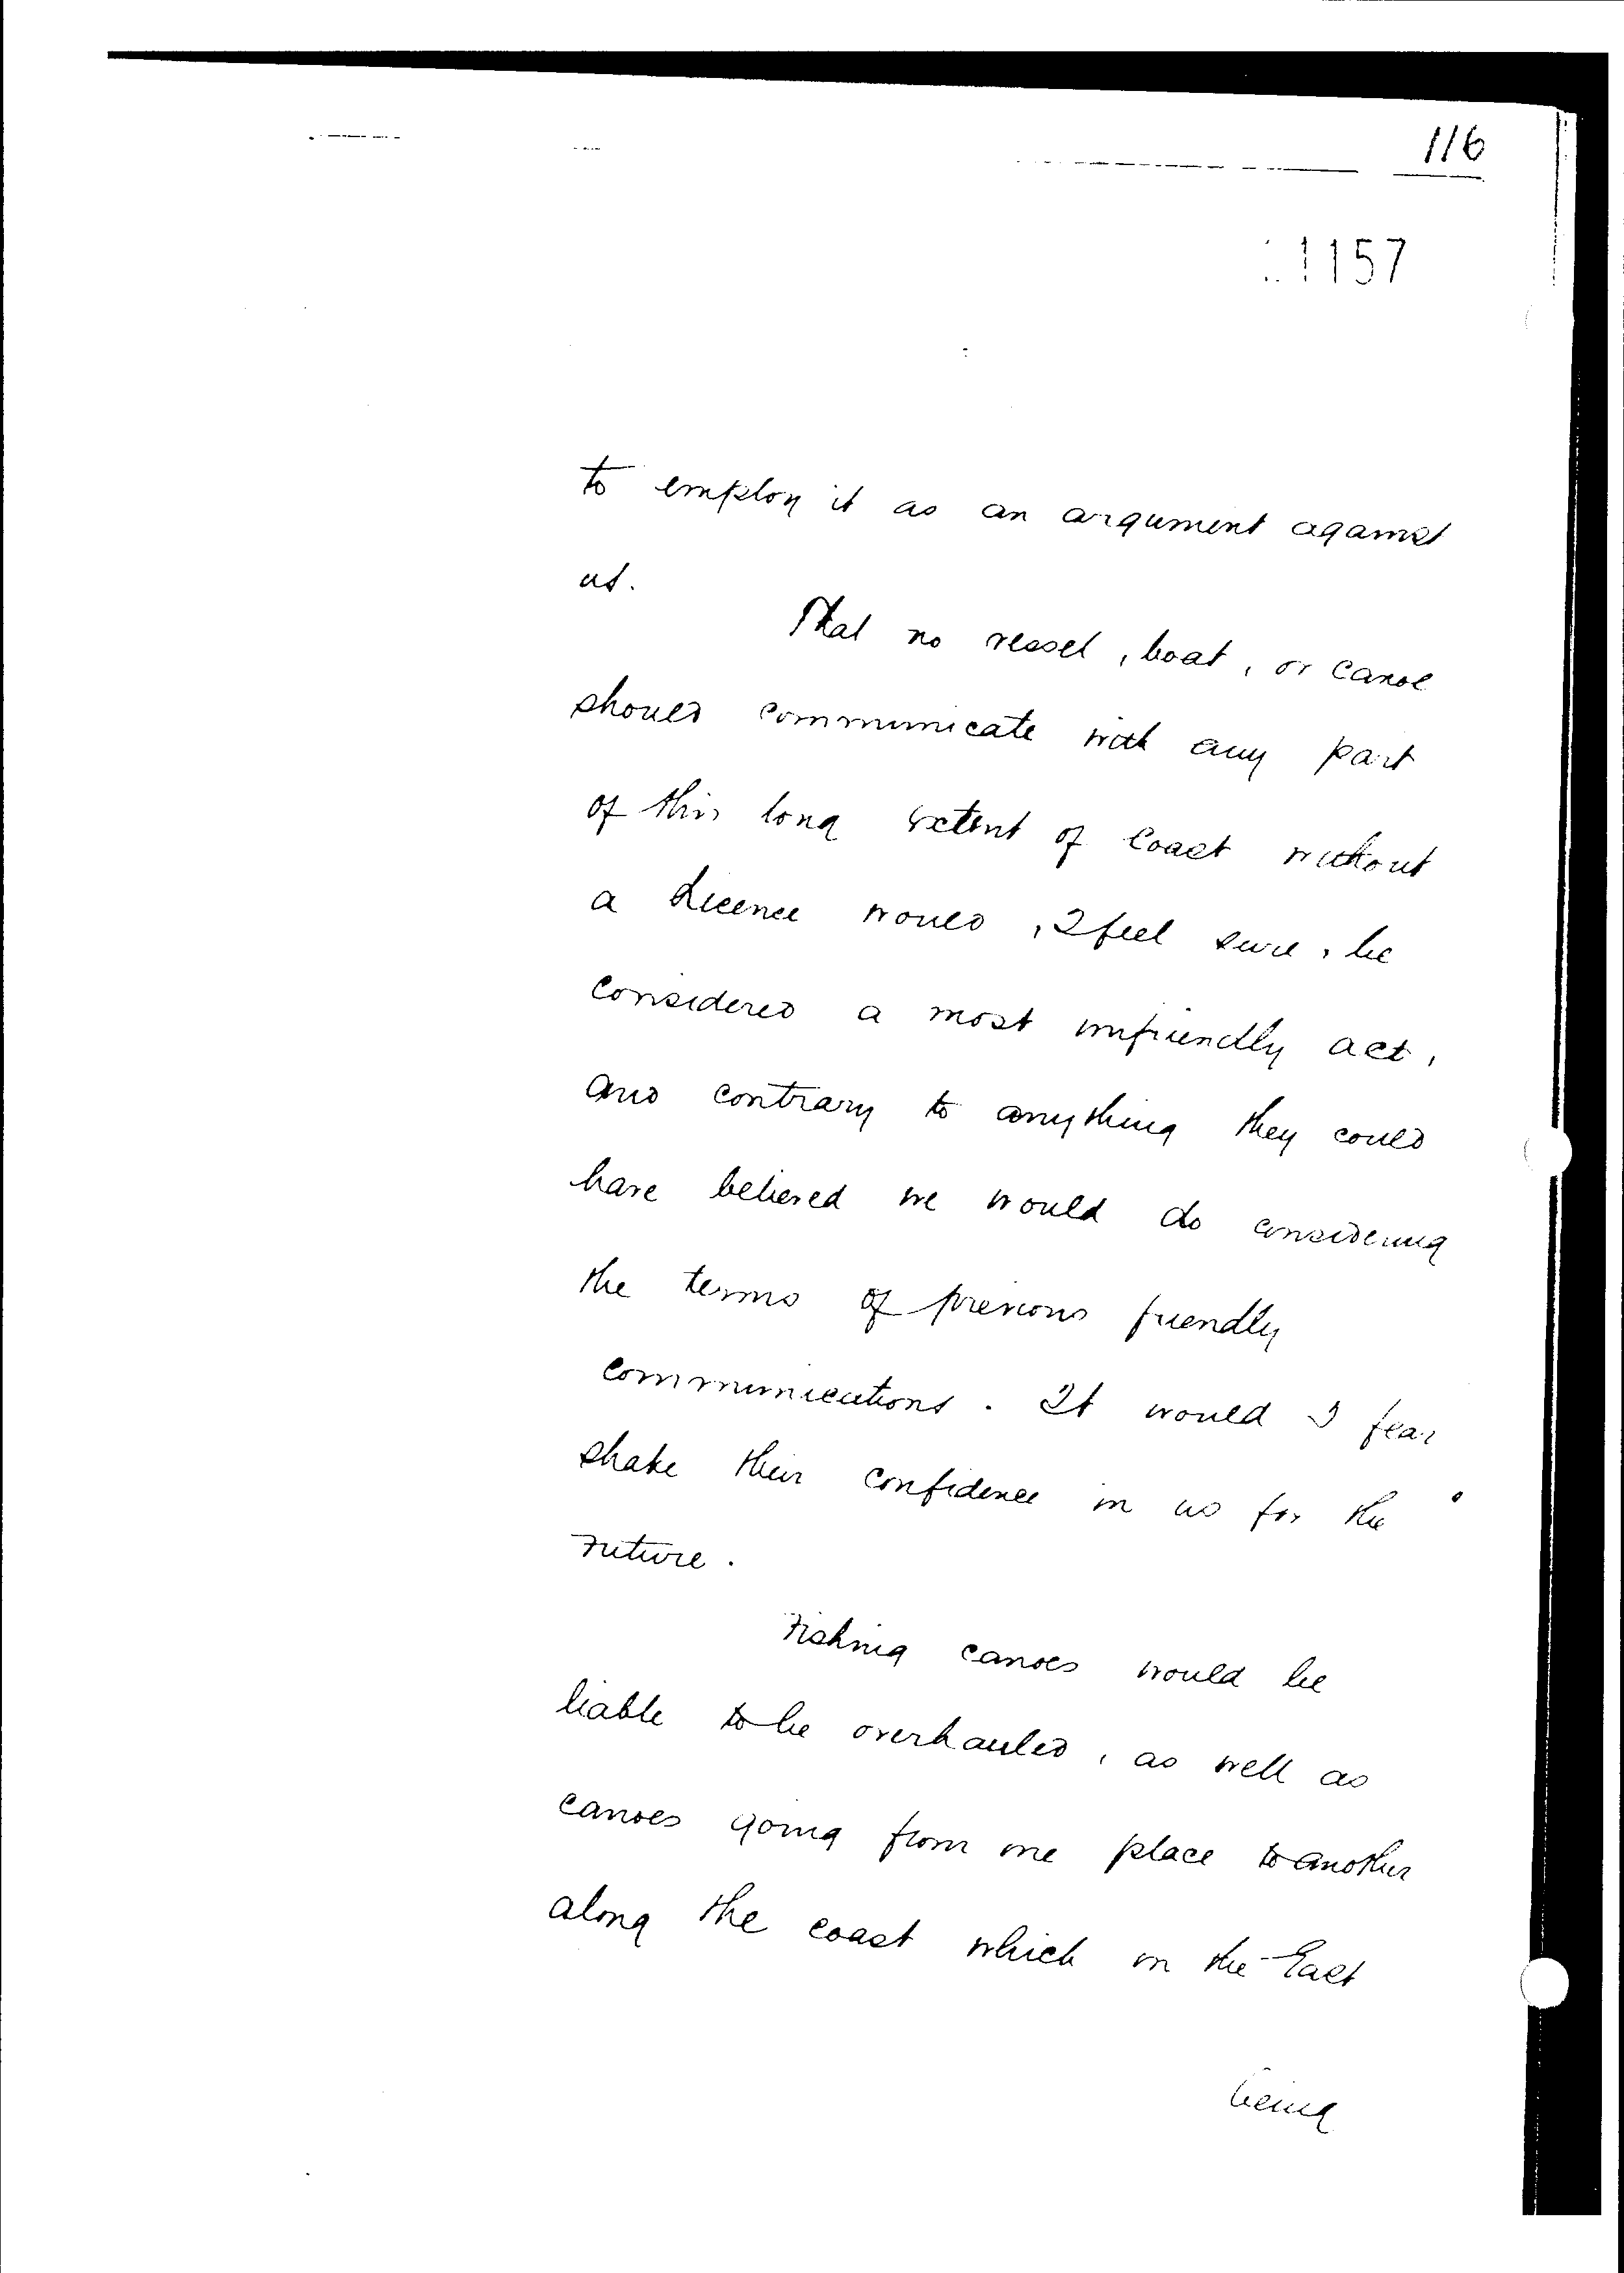 116
1157
to employ it as an argument against
us.
That no vessel, boat, or canoe
should communicate with any part
of this long extent of Coast without
a Licence would, I feel sure, be
considered a most unfriendly act,
and contrary to anything they could
have believed we would do considering
the terms of previous friendly
communications. It would I fear
shake their confidence in us for the
future.
Fishing canoes would be
liable to be overhauled, as well as
canoes going from one place to another
along the coast which in the East
being